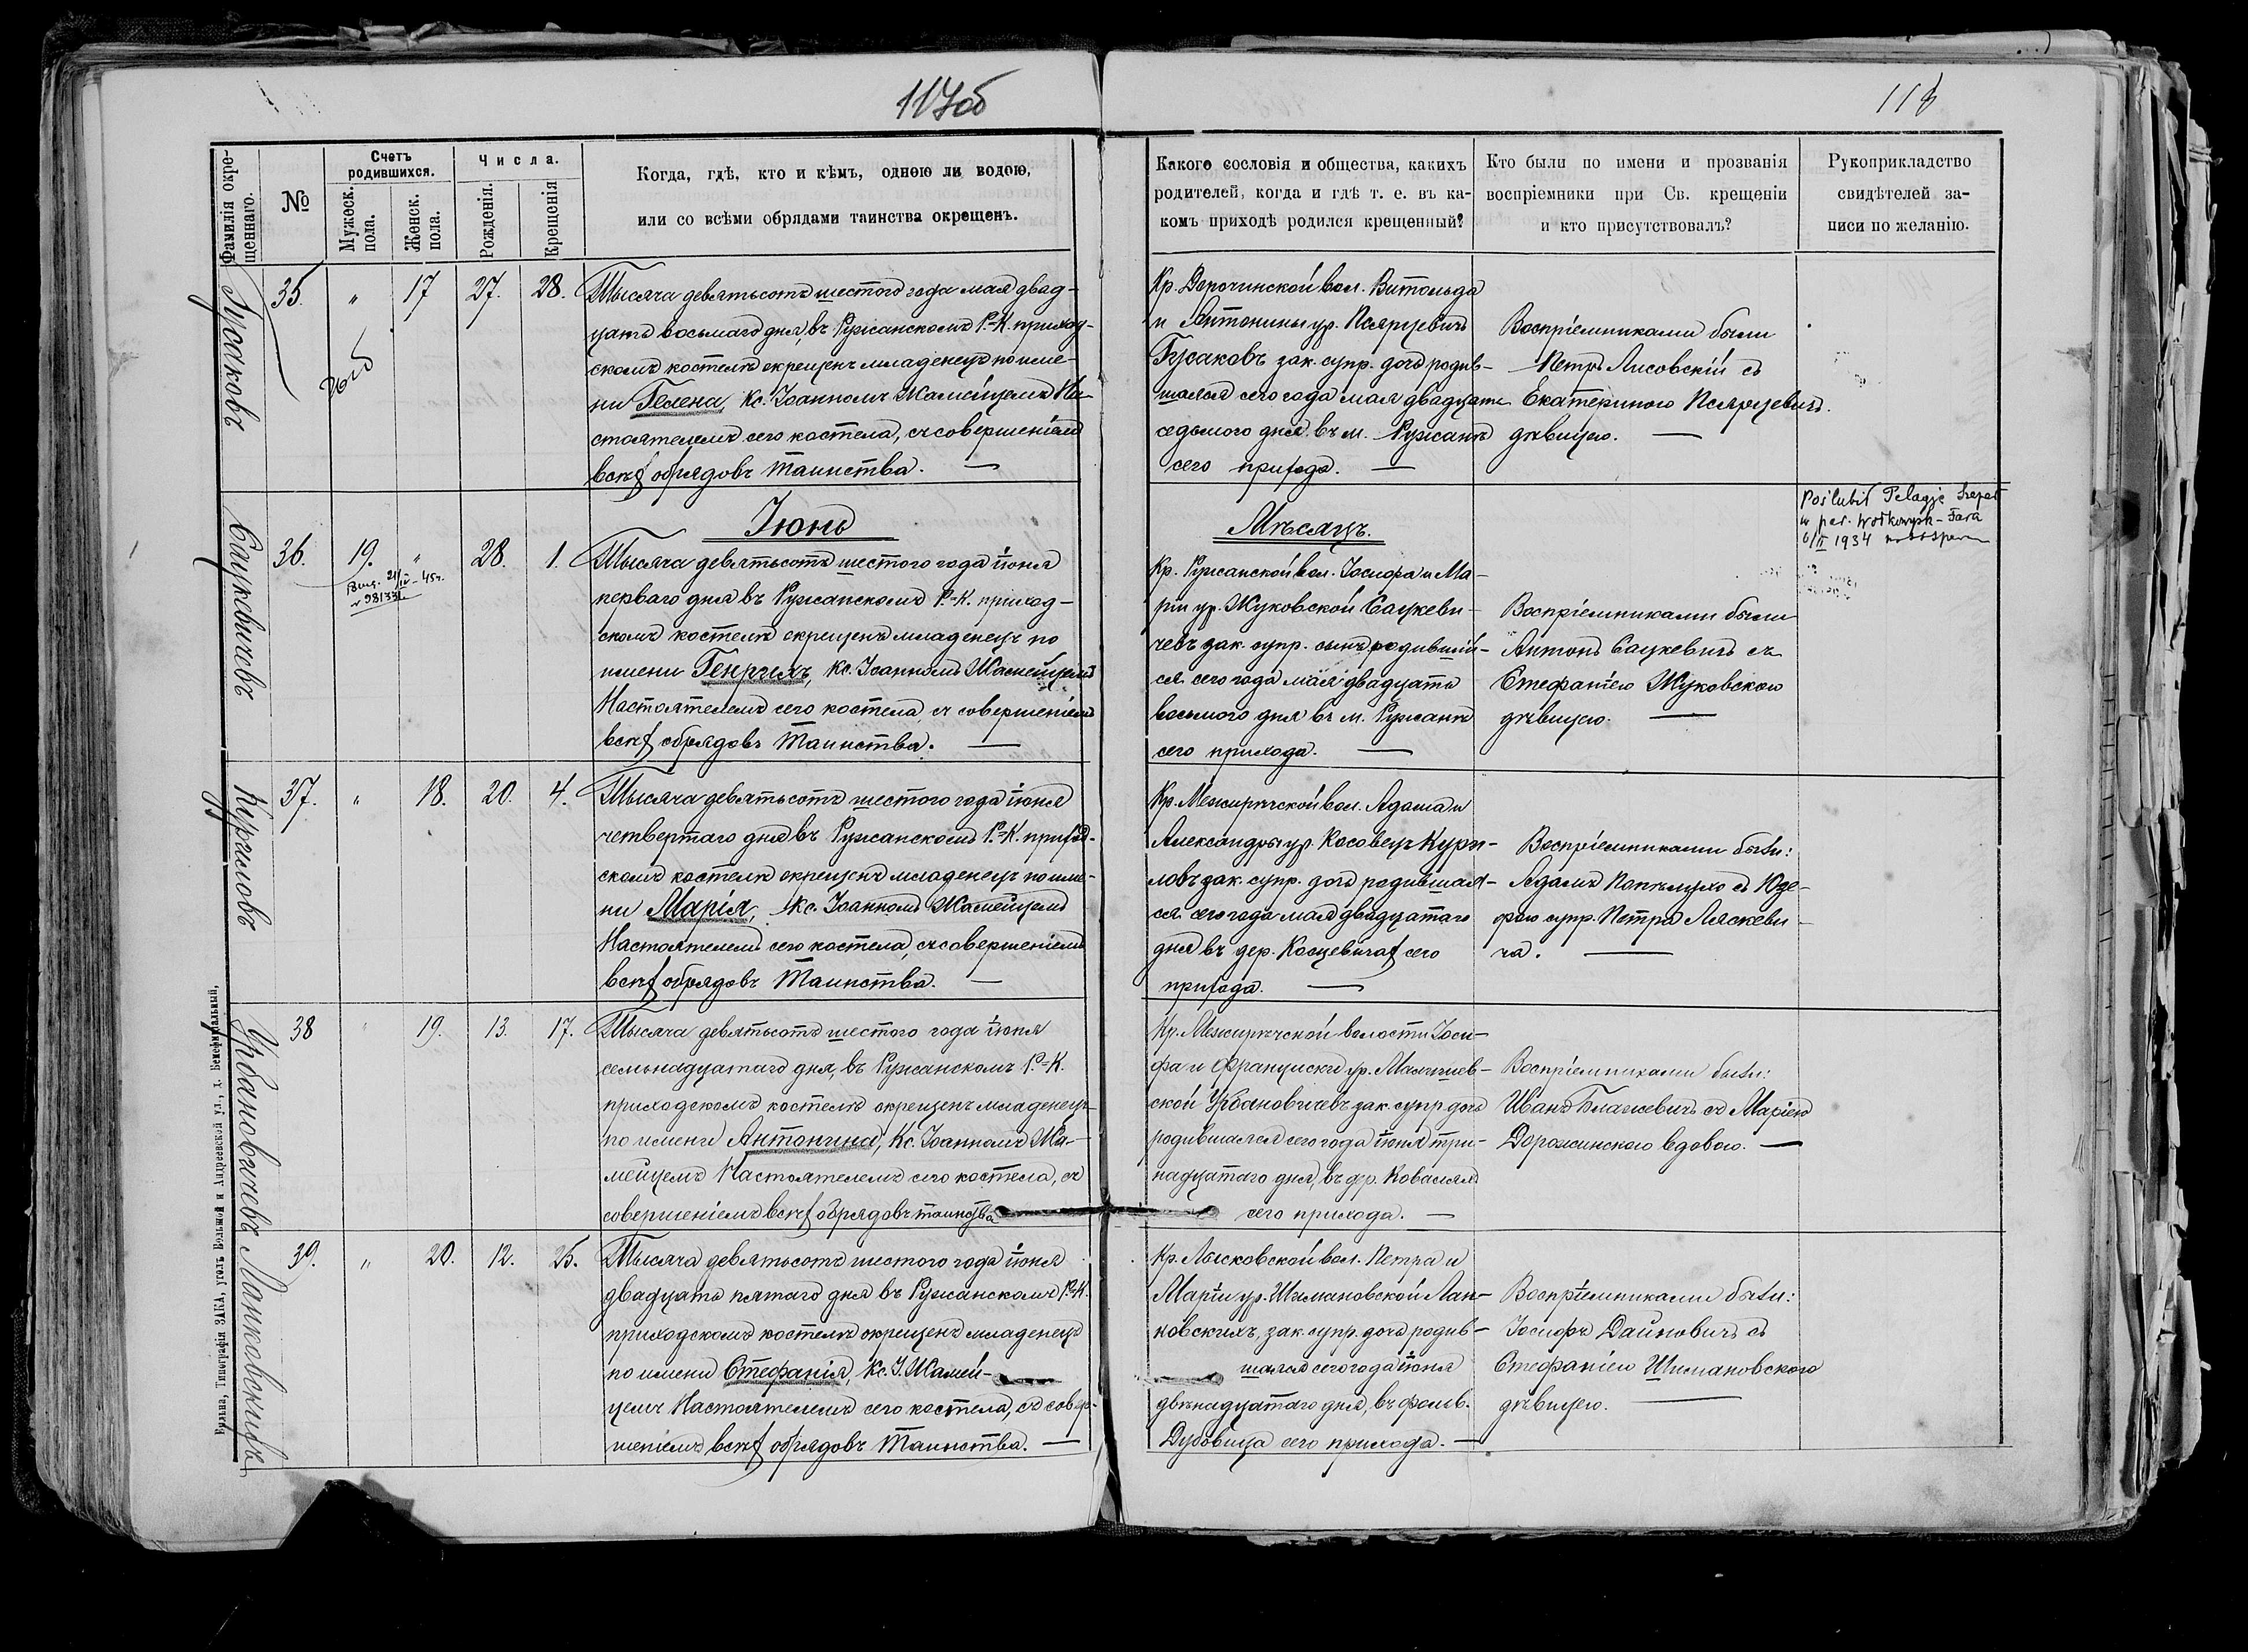 117об
118
Фамилія окре-
щеннаго.
№
Счетъ
родившихся.
Мужеск.
пола.
Женск.
пола.
Числа.
Рожденія.
Крещенія
Когда, гдѣ, кто и кѣмъ, одною ли водою,
или со всѣми обрядами таинства окрещенъ.
Какого сословія и общества, какихъ
родителей, когда и гдѣ т. е. въ ка-
комъ приходѣ родился крещенный?
Кто были по имени и прозванія
воспріемники при Св. крещеніи
и кто присутствовалъ?
Рукоприкладство
свидѣтелей за-
писи по желанію.
Гусаковъ
35. " 17 27. 28.
Тысяча девятьсотъ шестого года мая двад-
цать восьмаго дня, въ Ружанскомъ Р.-К. приход-
скомъ костелѣ окрещенъ младенецъ по име-
ни Гелена, Кс. Іоанномъ Жамейцемъ На-
стоятелемъ сего костела, съ совершеніемъ
всѣхъ обрядовъ Таинства. —
Кр. Деречинской вол. Витольда
и Антонины ур. Псярцевичъ
Гусаковъ зак. супр. дочь родив-
шаяся сего года мая двадцать
седьмого дня въ м. Ружанѣ
сего прихода. —
Воспріемниками были
Петръ Лисовскій съ
Екатериною Псярцевичъ
дѣвицею. —
Сацкевичовъ
Іюнь
Мѣсяцъ.
36. 19. " 28. 1.
Тысяча девятьсотъ шестого года іюня
перваго дня въ Ружанскомъ Р.-К. приход-
скомъ костелѣ окрещенъ младенецъ по
имени Генрихъ, Кс. Іоанномъ Жамейцемъ
Настоятелемъ сего костела, съ совершеніемъ
всѣхъ обрядовъ Таинства. —
Кр. Ружанской вол. Іосифа и Ма-
ріи ур. Жуковской Сацкеви-
чевъ зак. супр. сынъ родившій-
ся сего года мая двадцать
восьмого дня въ м. Ружанѣ
сего прихода. —
Воспріемниками были
Антонъ Сацкевичъ съ
Стефаніею Жуковскою
дѣвицею. —
Poślubił Pelagję
w par. Wołkowysk - Fara
6/II 1934
Куриловъ
37. " 18. 20. 4.
Тысяча девятьсотъ шестого года іюня
четвертаго дня въ Ружанскомъ Р.-К. приход-
скомъ костелѣ окрещенъ младенецъ по име-
ни Марія, Кс. Іоанномъ Жамейцемъ
Настоятелемъ сего костела, съ совершеніемъ
всѣхъ обрядовъ Таинства. —
Кр. Межирѣчской вол. Адама и
Александры ур. Косовецъ Кури-
ловъ зак. супр. дочь родившая-
ся сего года мая двадцатаго
дня въ дер. Косцевичахъ сего
прихода. —
Воспріемниками были:
Адамъ Папѣлухо съ Юзе-
фою супр. Петра Ляскеви-
ча. —
Урбановичевъ
38 " 19. 13. 17.
Тысяча девятьсотъ шестого года іюня
семьнадцатаго дня, въ Ружанскомъ Р.-К.
приходскомъ костелѣ окрещенъ младенецъ
по имени Антонина, Кс. Іоанномъ Жа-
мейцемъ Настоятелемъ сего костела, съ
совершеніемъ всѣхъ обрядовъ таинства
Кр. Межирѣчской волости Іоси-
фа и Франциски ур. Малишев-
ской Урбановичевъ зак. супр. дочь
родившаяся сего года іюня три-
надцатаго дня, въ дер. Ковалях
сего прихода. —
Воспріемниками были:
Иванъ Блажевичъ съ Маріею
Дорожинскою вдовою. —
Ланковскихъ
39. " 20. 12. 25.
Тысяча девятьсотъ шестого года іюня
двадцать пятаго дня въ Ружанскомъ Р.-К.
приходскомъ костелѣ окрещенъ младенецъ
по имени Стефанія, Кс. І. Жамей-
цемъ Настоятелемъ сего костела, съ совер-
шеніемъ всѣхъ обрядовъ Таинства. —
Кр. Лысковской вол. Петра и
Маріи ур. Шимановской Лан-
ковскихъ, зак. супр. дочь родив-
шаяся сего года іюня
двѣнадцатаго дня, въ фольв.
Дубовица сего прихода. —
Воспріемниками были:
Іосифъ Дайновичъ съ
Стефаніею Шимановскою
дѣвицею. —
Вильна, Типографія ЗАКА, уголъ Большой и Андреевской ул., д. Бенефиціальный.